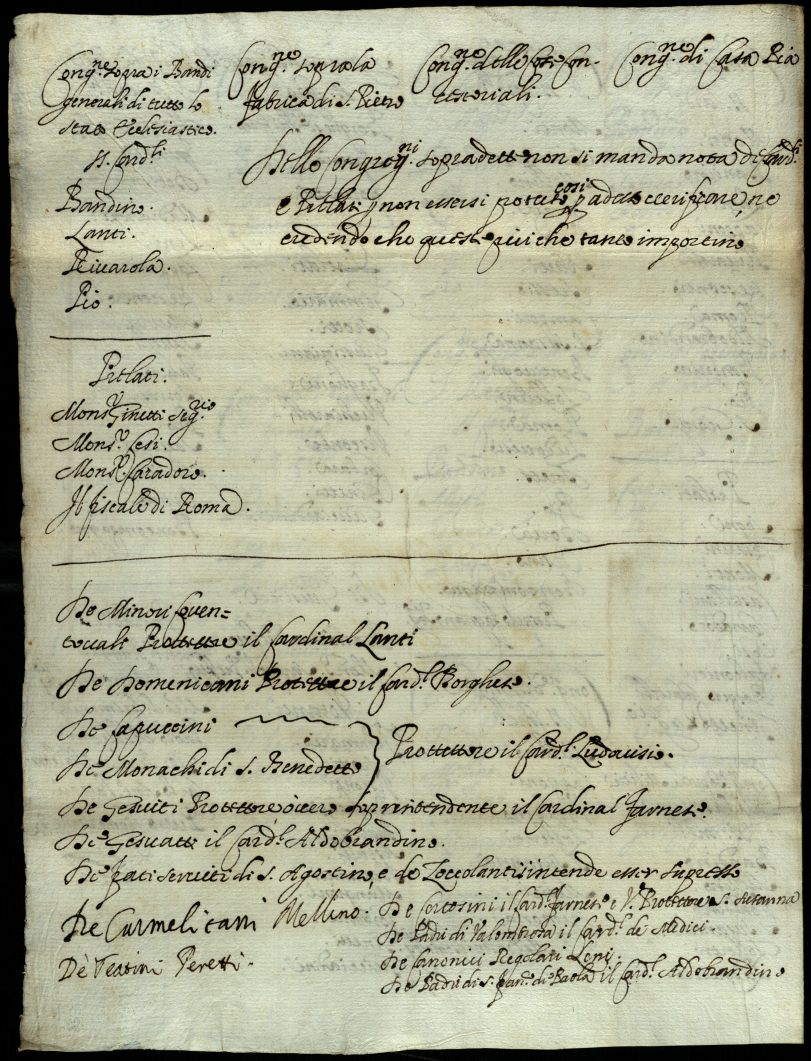 Cong.ne sopra i Bandi
generali di tutto lo
stato Ecclesiastico.
SS. Card.li
Bandino.
Lanti.
Rivarola.
Pio.
Cong.ne sopra la
fabrica di S. Pietro
Cong.ne delle cose Con-
cistoriali.
Cong.ne di Casa Pia
Delle Congreg.ni sopradette non si manda nota de Card.li
e Prelati p non essersi potuto così p adesso
credendo che queste più che tanto importino
Prelati.
Mons.r Ginetti Seg.rio
Mons.r Cesi.
Mons.r
Il fiscale di Roma.
De Minori Conven=
tuali Prottettore il Cardinal Lanti
De Domenicani Protettore il Card.l Borghese.
De Capuccini
De Monachi di S. Benedetto
Prottettore il Card.l Ludovisio.
De Gesuiti Prottettore, overo soprintendente il Cardinal Farnese.
De Gesuati il Card.l Aldobrandino.
De frati serviti di S. Agostino, e de Zoccolanti s'intende esser
De Carmelitani Mellino.
De Teatini Peretti.
De il Card.l Farnese e V. Prottettore S. Susanna
De Padri di Valombrosa il Card.l de Medici.
De Canonici Regolari Leni.
De Padri di S. Fran.co di Paola il Card.l Aldobrandino